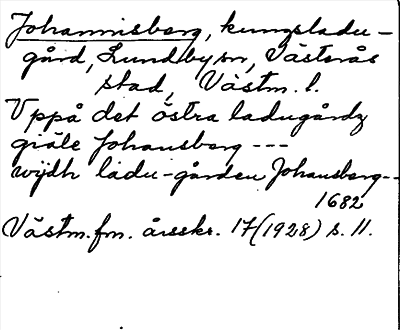 Johannisberg, kungsladu-
gård, Lundby sn, Västerås
stad, Västm. l.
Uppå det östra ladugårdz
giäle Johansberg ---
wijdh ladu-gården Johansberg--
1682
Västm. fm. årsskr. 17 (1928) s. 11.